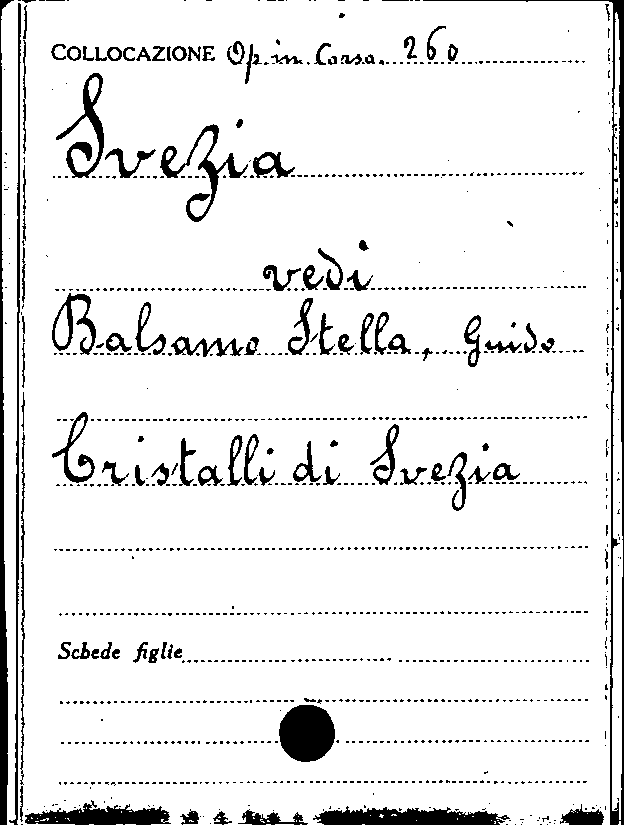 COLLOCAZIONE Op. in Corso. 260
Svezia
vedi
Balsamo Stella, Guido
Cristalli di Svezia
Schede figlie